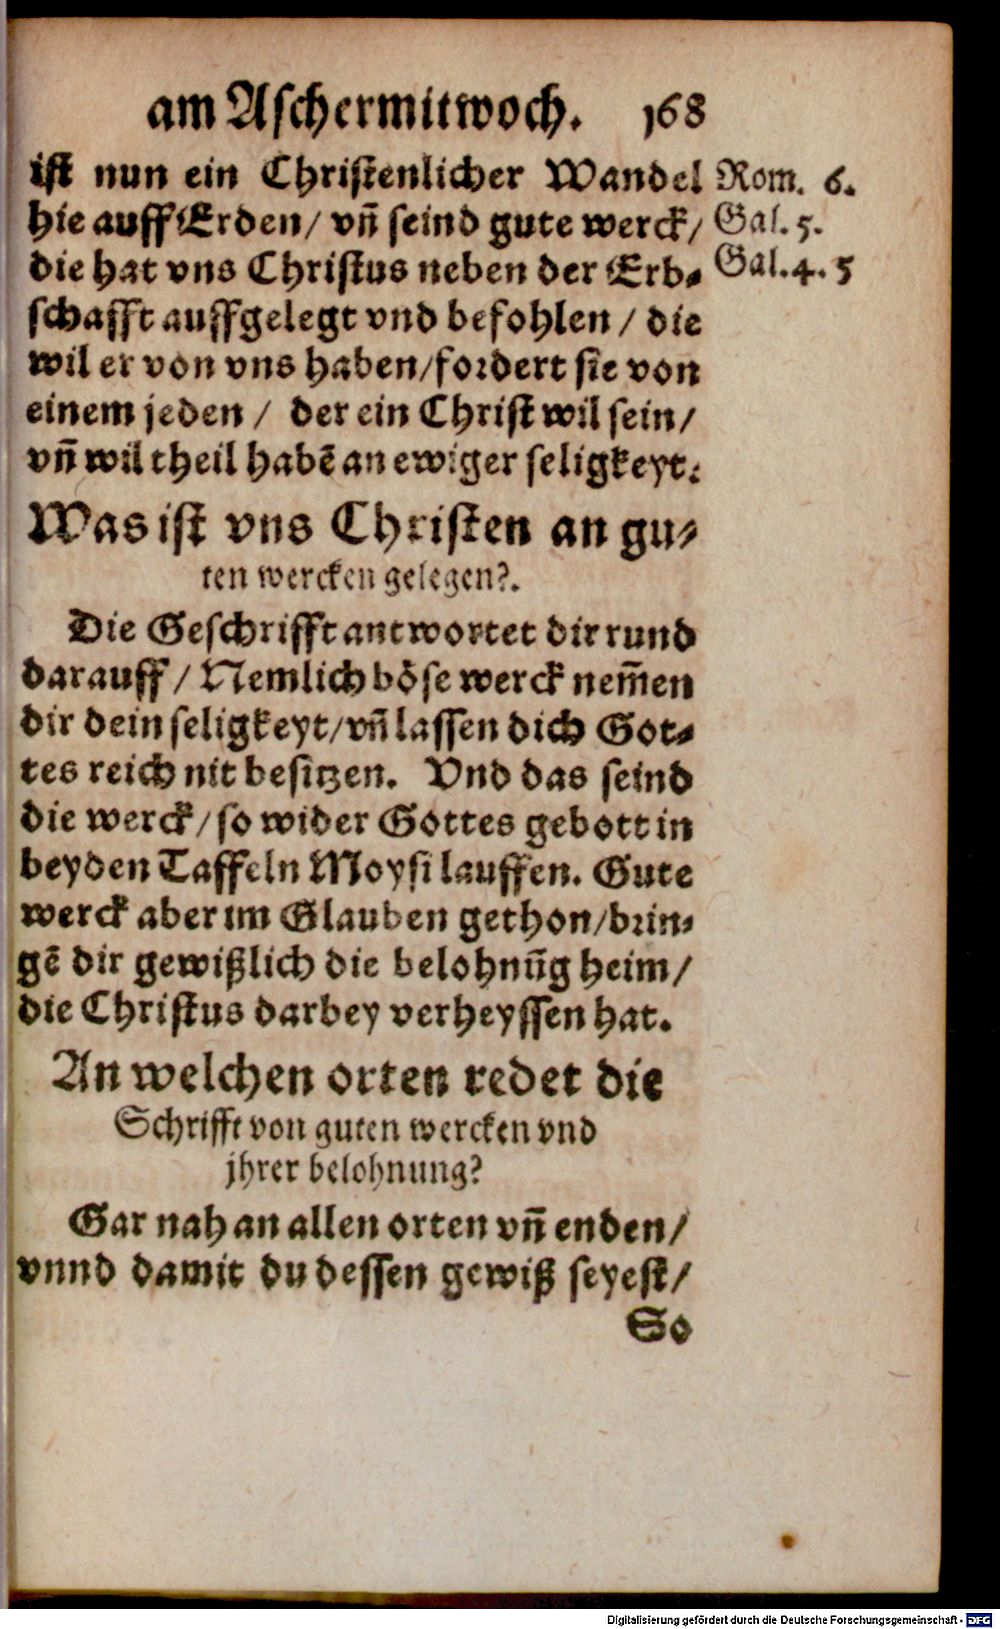 am Aschermitwoch. 168
ist nun ein Christenlicher Wandel Rom. 6.
hie auff Erden/ vn̄ seind gute werck/ Gal. 5.
die hat vns Christus neben der Erb⸗ Gal. 4. 5
schafft auffgelegt vnd befohlen / die
wil er von vns haben/fordert sie von
einem jeden / der ein Christ wil sein/
vn̄ wil theil habē an ewiger seligkeyt.
Was ist vns Christen an gu⸗
ten wercken gelegen?.
Die Geschrifft antwortet dir rund
darauff / Nemlich böse werck nem̄en
dir dein seligkeyt/vn̄ lassen dich Got⸗
tes reich nit besitzen. Vnd das seind
die werck/so wider Gottes gebott in
beyden Taffeln Moysi lauffen. Gute
werck aber im Glauben gethon/brin⸗
gē dir gewißlich die belohnūg heim/
die Christus darbey verheyssen hat.
An welchen orten redet die
Schrifft von guten wercken vnd
jhrer belohnung?
Gar nah an allen orten vn̄ enden/
vnnd damit du dessen gewiß seyest/
So
Digitalisierung gefördert durch die Deutsche Forschungsgemeinschaft - DFG